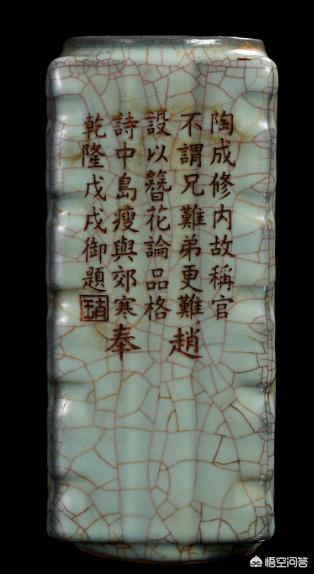 陶成修內故稱官
不謂兄難弟更難
設以簪花論品格
詩中島瘦與郊寒
乾隆戊戌御題
趙
奉
悟空问答